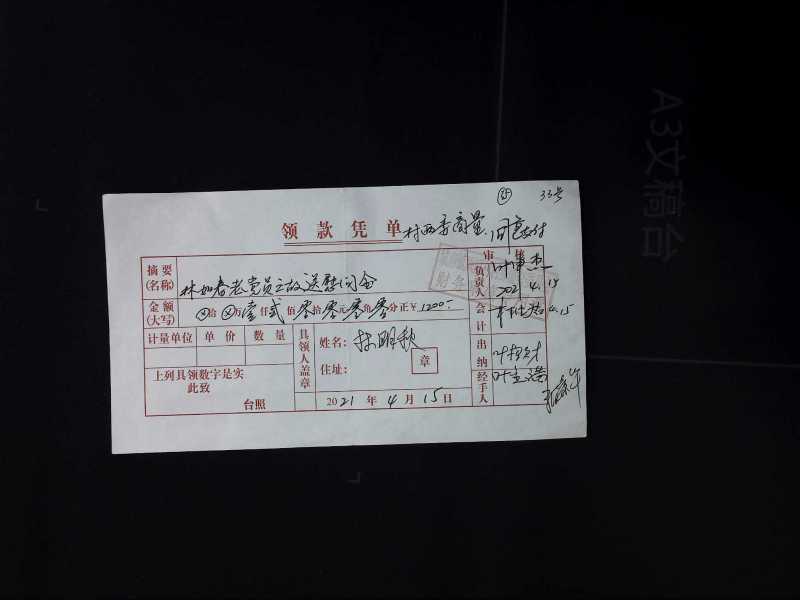 A3文稿台
㉕ 33号
领款凭单 村两委商量.同意支付
审核
摘要(名称) 林如春老党员亡故送慰问金
负责人
2021.4.15
金额(大写) ⊗拾⊗万壹仟贰佰零拾零元零角零分正¥1200-
会计 4.15
计量单位 单价 数量
具领人盖章
姓名: 林明秋
住址:
章
出纳
上列具领数字是实
此致
台照
2021年4月15日
经手人